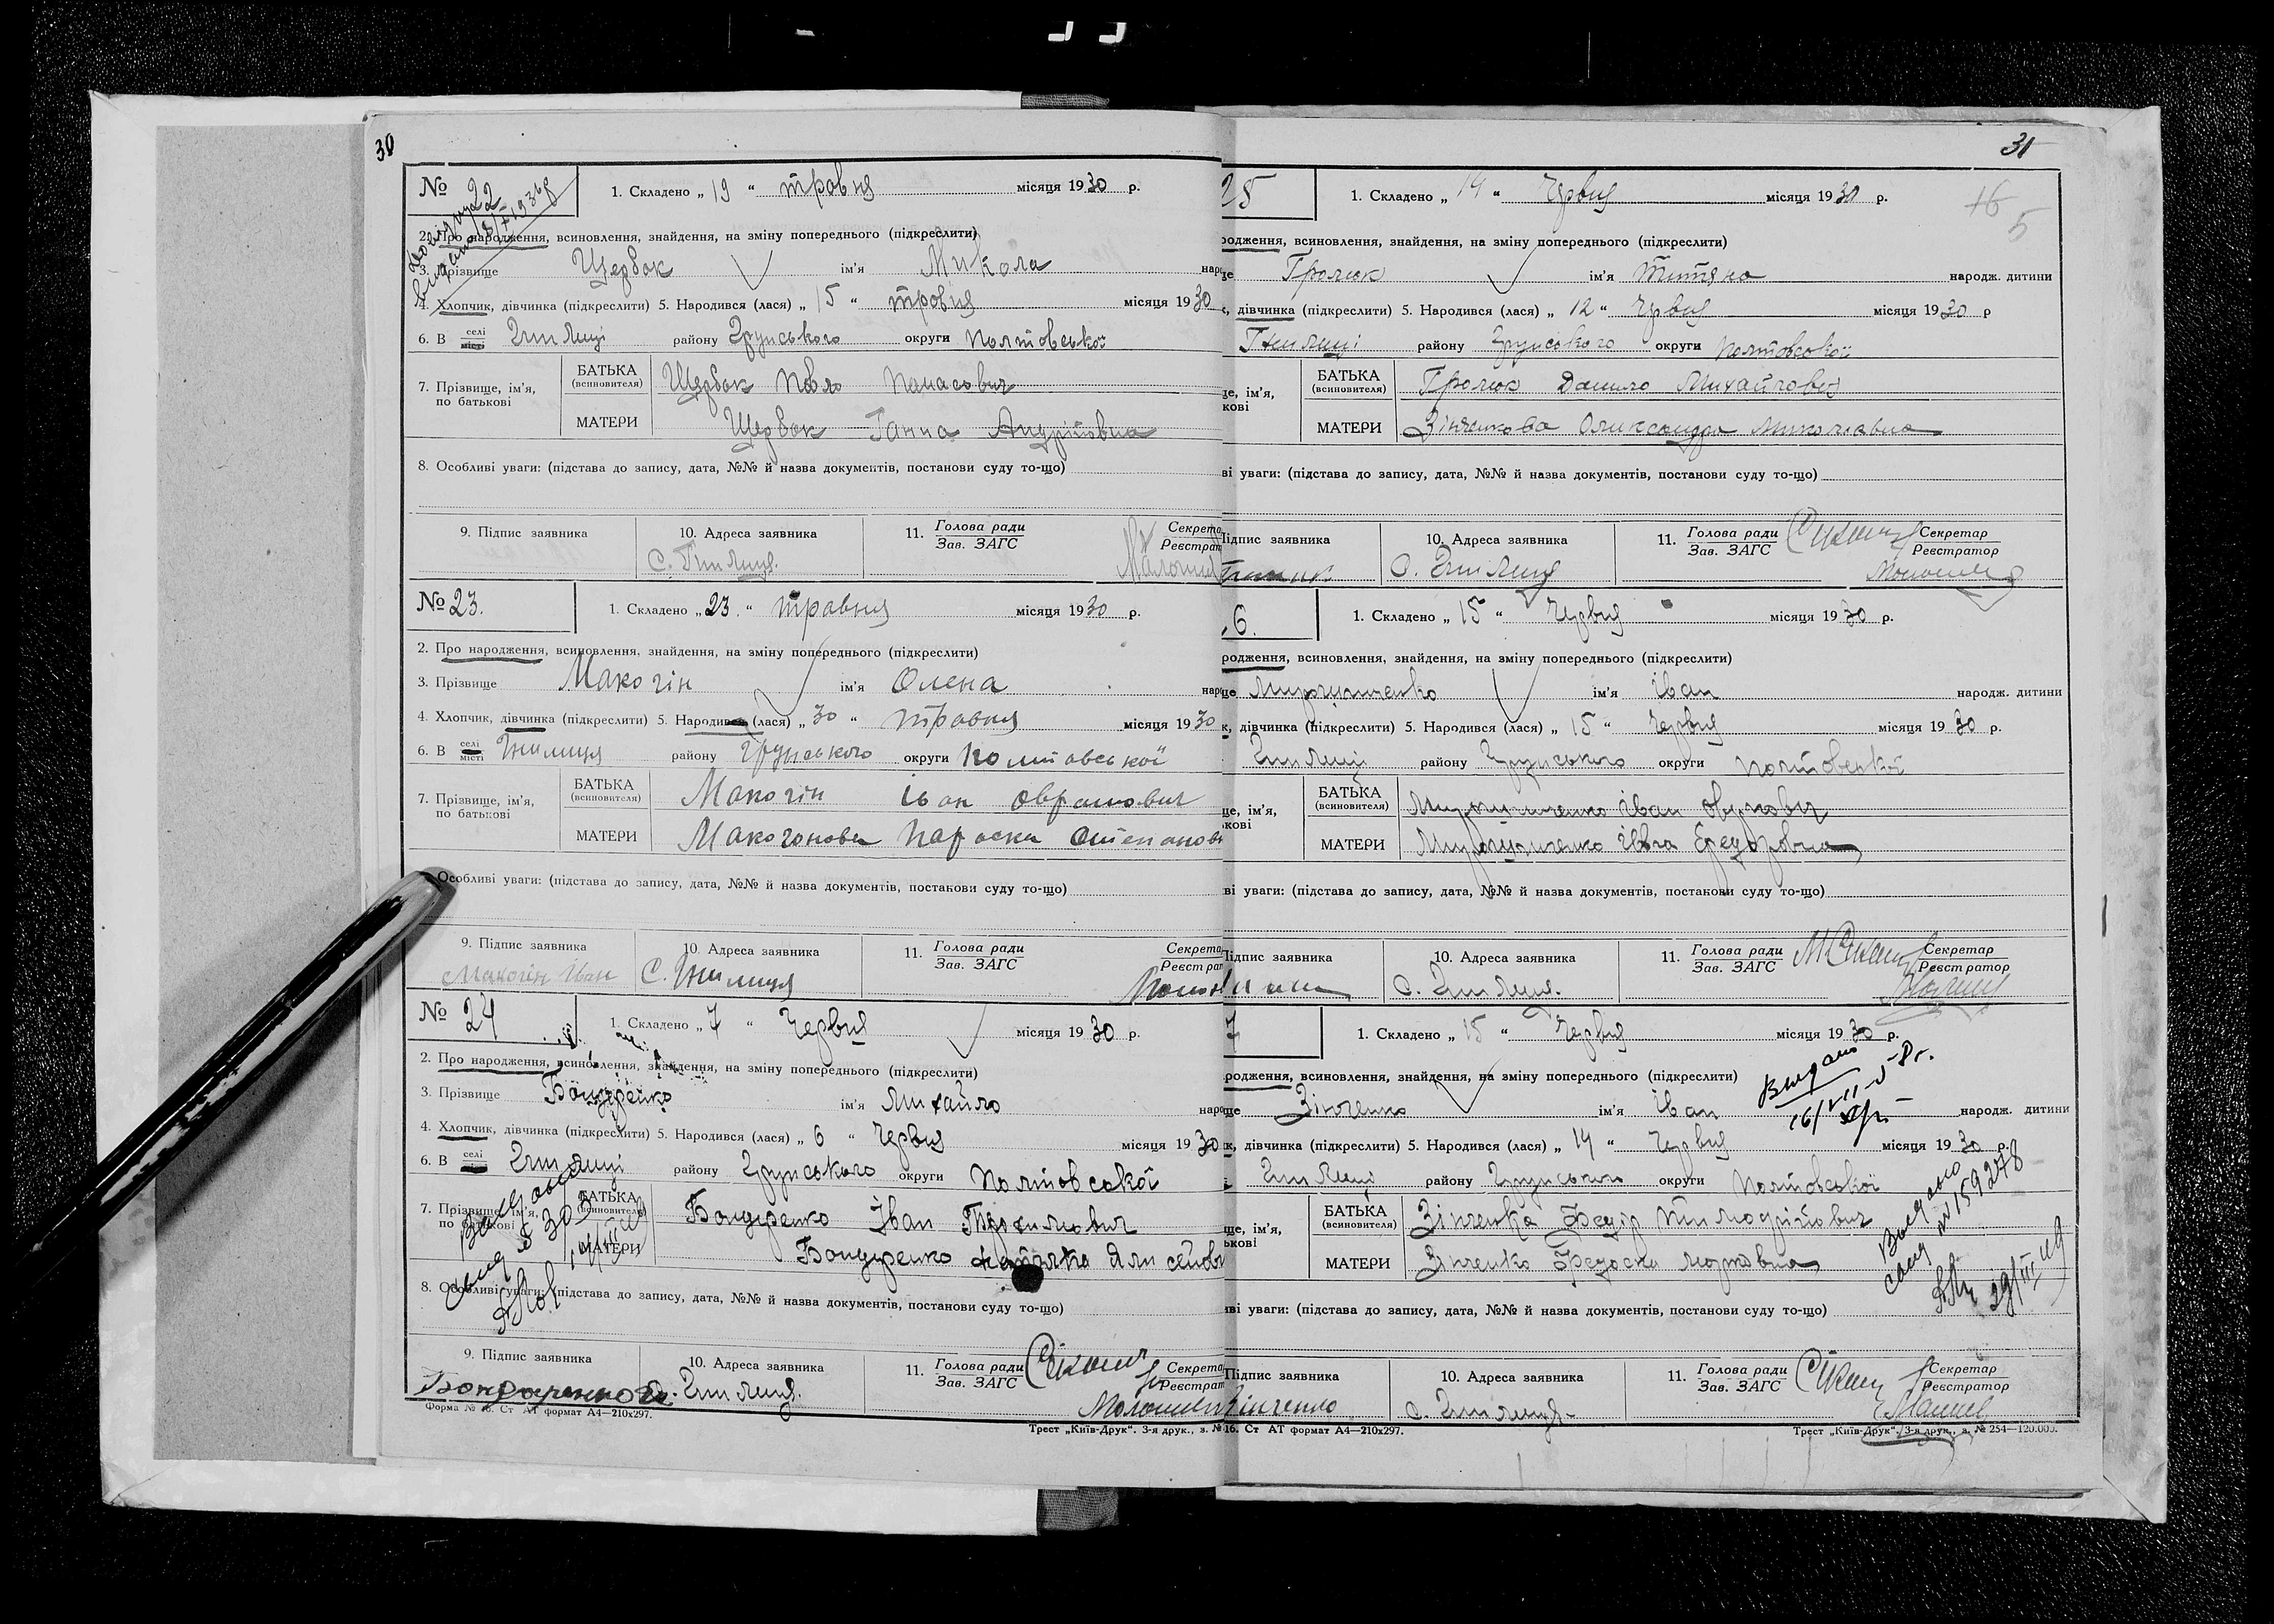 30
№ 22
1. Складено „ 19 “ травня місяця 1930 р.
2. Про народження, всиновлення, знайдення, на зміну попереднього (підкреслити)
3. Прізвище Щербак ім'я Микола
4. Хлопчик, дівчинка (підкреслити) 5. Народився (лася) „ 15 “ травня місяця 1930
6. В селі місті Гнилиці району Грунського округи Полтовської
7. Прізвище, ім'я, по батькові
БАТЬКА (всиновителя) Щербак Павло Панасович
МАТЕРИ Щербак Ганна Андріївна
8. Особливі уваги: (підстава до запису, дата, №№ й назва документів, постанови суду то-що)
9. Підпис заявника 10. Адреса заявника 11. Голова ради Зав. ЗАГС
С. Гнилиця.
№ 23.
1. Складено „ 23. “ травня місяця 1930 р.
2. Про народження, всиновлення, знайдення, на зміну попереднього (підкреслити)
3. Прізвище Макогін ім'я Олена
4. Хлопчик, дівчинка (підкреслити) 5. Народився (лася) „ 30 “ травня місяця 1930
6. В селі місті Гнилиця району Грунського округи Полтавської
7. Прізвище, ім'я, по батькові
БАТЬКА (всиновителя) Макогін Іван Оврамович
МАТЕРИ Макогонова Параска
Особливі уваги: (підстава до запису, дата, №№ й назва документів, постанови суду то-що)
9. Підпис заявника 10. Адреса заявника 11. Голова ради Зав. ЗАГС
Макогін Іван С. Гнилиця
№ 24
1. Складено „ 7 “ Червня місяця 1930 р.
2. Про народження, всиновлення, знайдення, на зміну попереднього (підкреслити)
3. Прізвище Бондаренко ім'я Михайло
4. Хлопчик, дівчинка (підкреслити) 5. Народився (лася) „ 6 “ Червня місяця 1930
6. В селі Гнилиці району Грунського округи Полтовської
7. Прізвище, ім'я, по батькові
БАТЬКА (всиновителя) Бондаренко Іван
МАТЕРИ Бондаренко
8. Особливі уваги: (підстава до запису, дата, №№ й назва документів, постанови суду то-що)
9. Підпис заявника 10. Адреса заявника 11. Голова ради Зав. ЗАГС
Бондаренко С. Гнилиця.
Форма № 16. Ст АТ формат А4—210х297.
Трест „Київ-Друк“. 3-я друк., з. №
31
25
1. Складено „ 14 “ Червня місяця 1930 р.
16
5
родження, всиновлення, знайдення, на зміну попереднього (підкреслити)
ім'я Титяна народж. дитини
дівчинка (підкреслити) 5. Народився (лася) „ 12 “ Червня місяця 1930 р
Гнилиці району Грунського округи Полтовської
БАТЬКА (всиновителя) Данило Михайлович
МАТЕРИ Зінченкова Олександра Миколаївна
уваги: (підстава до запису, дата, №№ й назва документів, постанови суду то-що)
Підпис заявника 10. Адреса заявника 11. Голова ради Зав. ЗАГС Секретар Реєстратор
С. Гнилиця
6.
1. Складено „ 15 “ Червня місяця 1930 р.
родження, всиновлення, знайдення, на зміну попереднього (підкреслити)
ім'я Іван народж. дитини
дівчинка (підкреслити) 5. Народився (лася) „ 15 “ Червня місяця 1930 р.
Гнилиці району Грунського округи Полтовської
БАТЬКА (всиновителя) Іван
МАТЕРИ Федоровна
уваги: (підстава до запису, дата, №№ й назва документів, постанови суду то-що)
Підпис заявника 10. Адреса заявника 11. Голова ради Зав. ЗАГС Секретар Реєстратор
С. Гнилиця.
7
1. Складено „ 15 “ Червня місяця 1930 р.
родження, всиновлення, знайдення, на зміну попереднього (підкреслити)
Зінченко ім'я Іван народж. дитини
дівчинка (підкреслити) 5. Народився (лася) „ 14 “ Червня місяця 1930 р.
Гнилиці району Грунського округи Полтовської
БАТЬКА (всиновителя) Зінченко Федір Тимофійович
МАТЕРИ Зінченко Федоска Марковна
уваги: (підстава до запису, дата, №№ й назва документів, постанови суду то-що)
Підпис заявника 10. Адреса заявника 11. Голова ради Зав. ЗАГС Секретар Реєстратор
Зінченко С. Гнилиця
16. Ст АТ формат А4—210х297.
Трест „Київ-Друк“. 3-я друк., з. № 254—120.000.